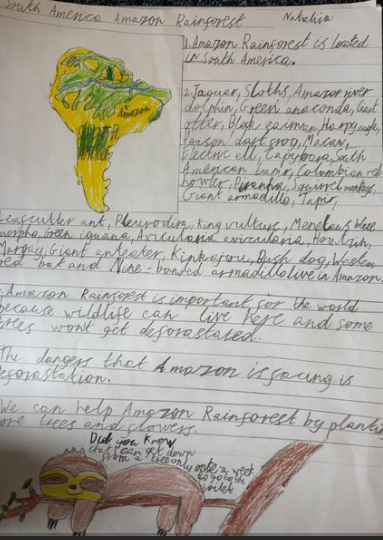 South America Amazon Rainforest Nathalia
1. Amazon Rainforest is located
in South America.
Amazon
2. Jaguar, Sloths, Amazon river
dolphin, Green anaconda, Giant
otter, Black caiman, Harpy eagle,
Poison dart frog, Macaw,
Electric ell, Capybara, South
American tapir, Colombian red
howler, Piranha, Squirrel monkeys,
Giant armadillo, Tapir,
Leafcutter ant, Pleurodira, King vulture, Menelaus blue
morpho, Green iguana, Avicularia avicularia, Hoatzin,
Margay, Giant anteater, Kinkajou, Bush dog, Western
red bat and Nine-banded armadillo live in Amazon.
Amazon Rainforest is important for the world
because wildlife can live here and some
trees wont get deforastated.
The dangers that Amazon is facing is
deforastation.
We can help Amazon Rainforest by planting
more trees and flowers.
Did you know
that I can get down
from a tree only once a week
to go to the
toilet